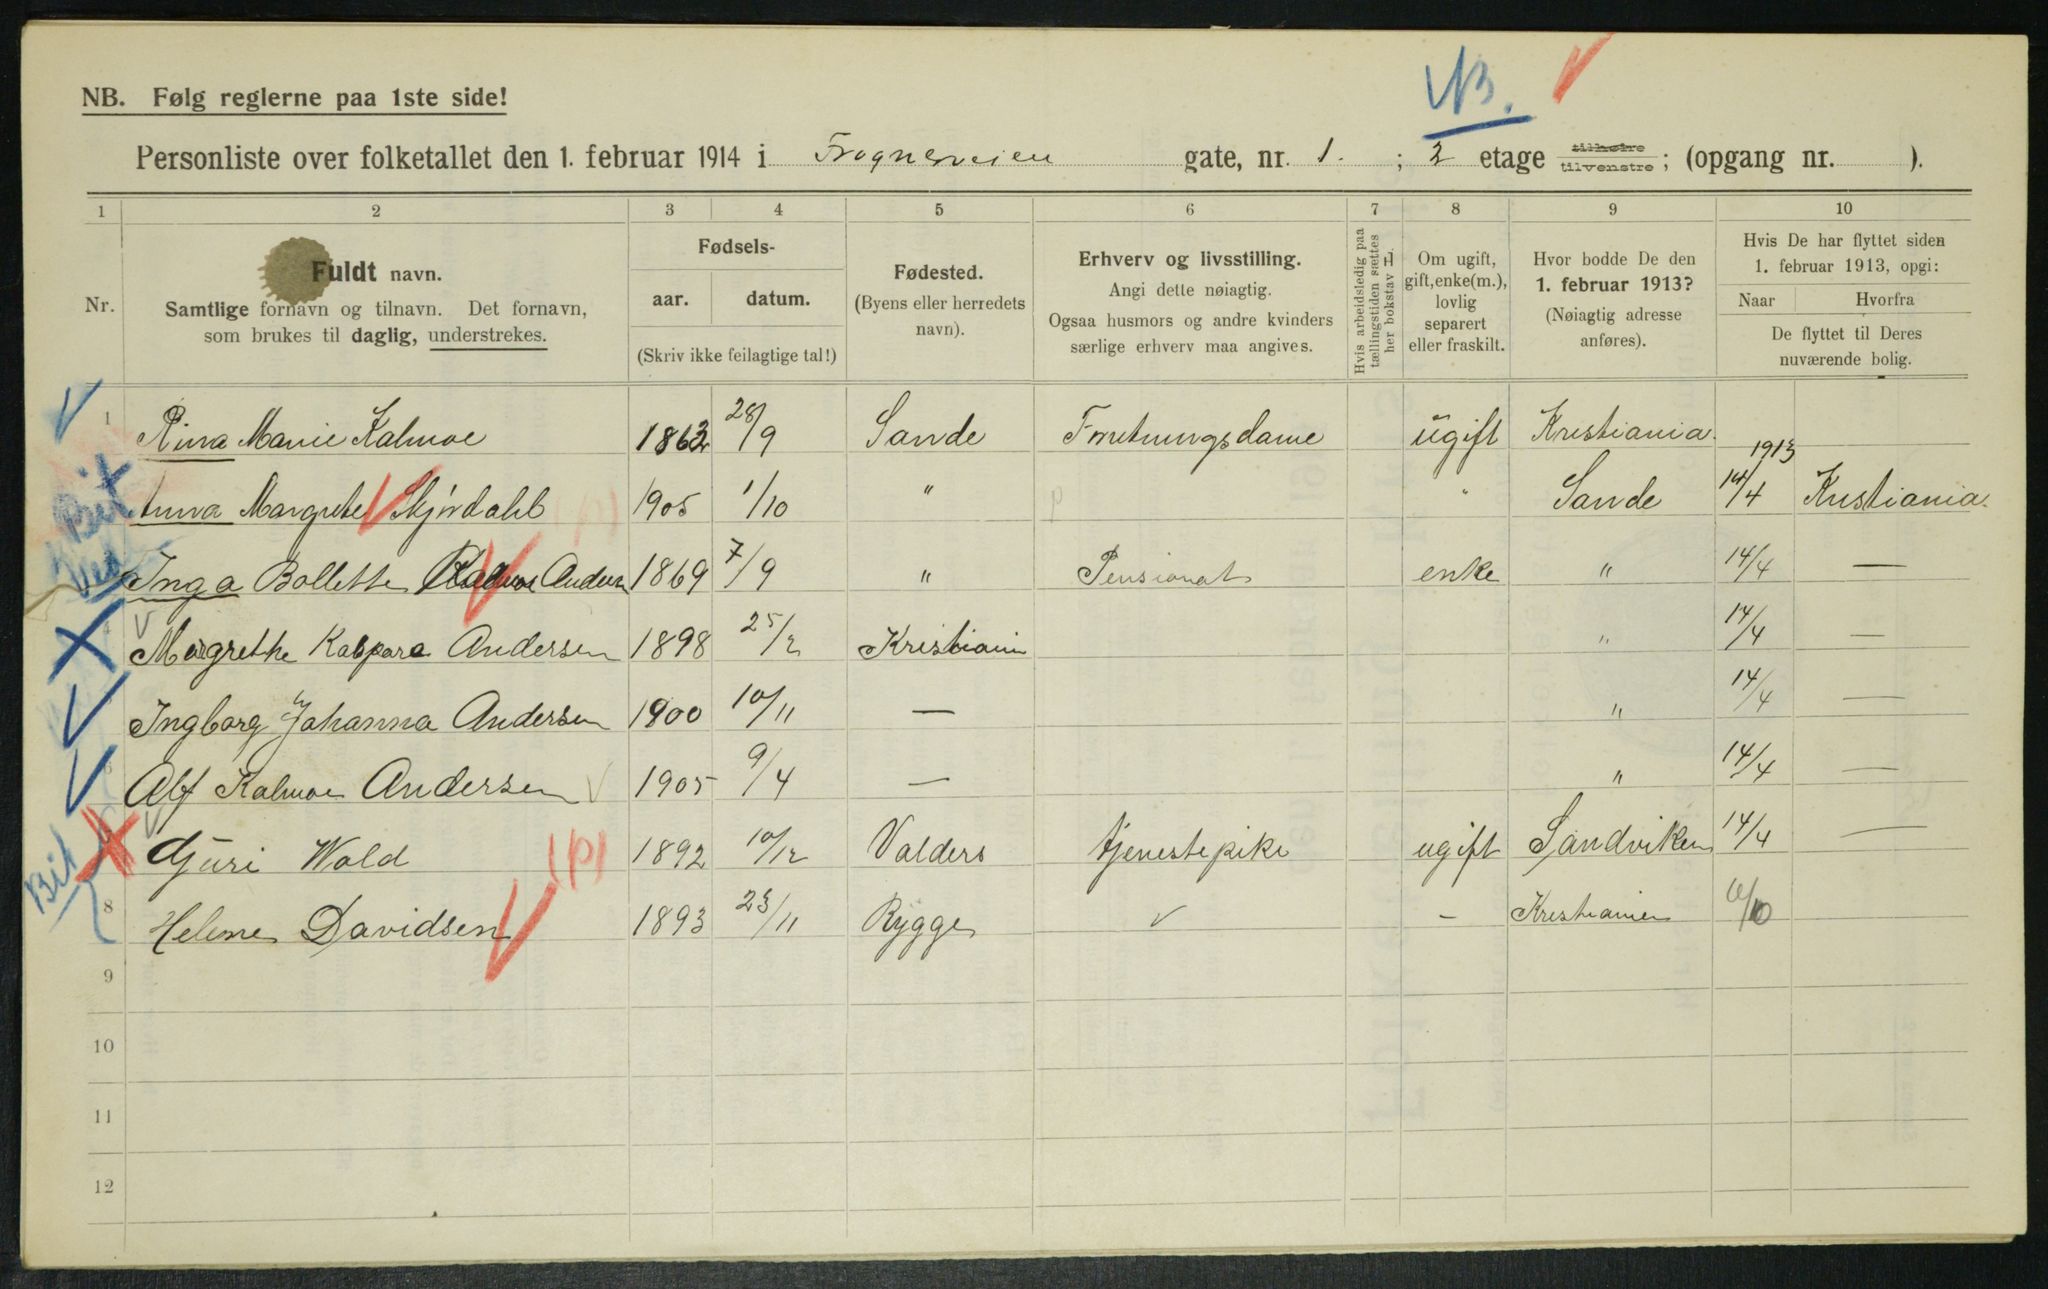 NB.
NB. Følg reglerne paa 1ste side!
Personliste over folketallet den 1. februar 1914 i Frognerveien gate, nr. 1. ; 2 etage tilhøire tilvenstre; (opgang nr. ).
1 2 3 4 5 6 7 8 9 10
Nr.
Fuldt navn.
Samtlige fornavn og tilnavn. Det fornavn,
som brukes til daglig, understrekes.
Fødsels-
aar. datum.
(Skriv ikke feilagtige tal!)
Fødested.
(Byens eller herredets
navn).
Erhverv og livsstilling.
Angi dette nøiagtig.
Ogsaa husmors og andre kvinders
særlige erhverv maa angives.
Hvis arbeidsledig paa
tællingstiden sættes
her bokstav L.
Om ugift,
gift, enke(m.),
lovlig
separert
eller fraskilt.
Hvor bodde De den
1. februar 1913?
(Nøiagtig adresse
anføres).
Hvis De har flyttet siden
1. februar 1913, opgi:
Naar Hvorfra
De flyttet til Deres
nuværende bolig.
1 Rina Marie Kalmoe 1863 28/9 Sande Forretningsdame ugift Kristiania.
Bit Anna Margrete Skjørdahl (p) 1905 1/10 " " Sande 1913 14/4 Kristiania.
Inga Bollette Kalmoe Andersn 1869 7/9 " Pensionat enke " 14/4 —
4 Margrethe Kaspara Andersen 1898 25/2 Kristiania " 14/4 —
Ingborg Johanna Andersen 1900 10/11 — " 14/4 —
6 Alf Kalmoe Andersen 1905 9/4 — " 14/4 —
Bit Guri Wold (p) 1892 10/12 Valders tjenestepike ugift Sandviken 14/4 —
8 Helene Davidsen 1893 23/11 Rygge — Kristiania
9
10
11
12